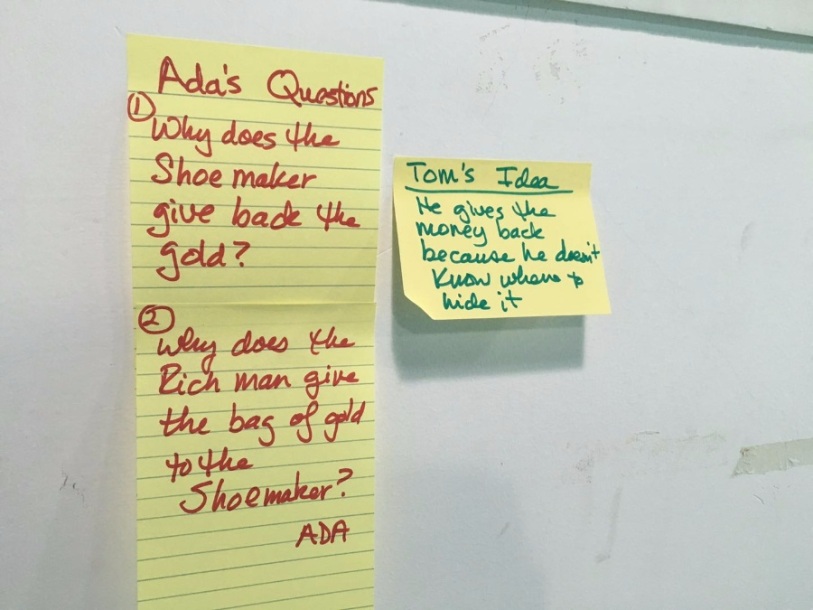 Ada's Questions
① Why does the
Shoemaker
give back the
gold?
② Why does the
Rich man give
the bag of gold
to the
Shoemaker?
ADA
Tom's Idea
He gives the
money back
because he doesn't
know where to
hide it